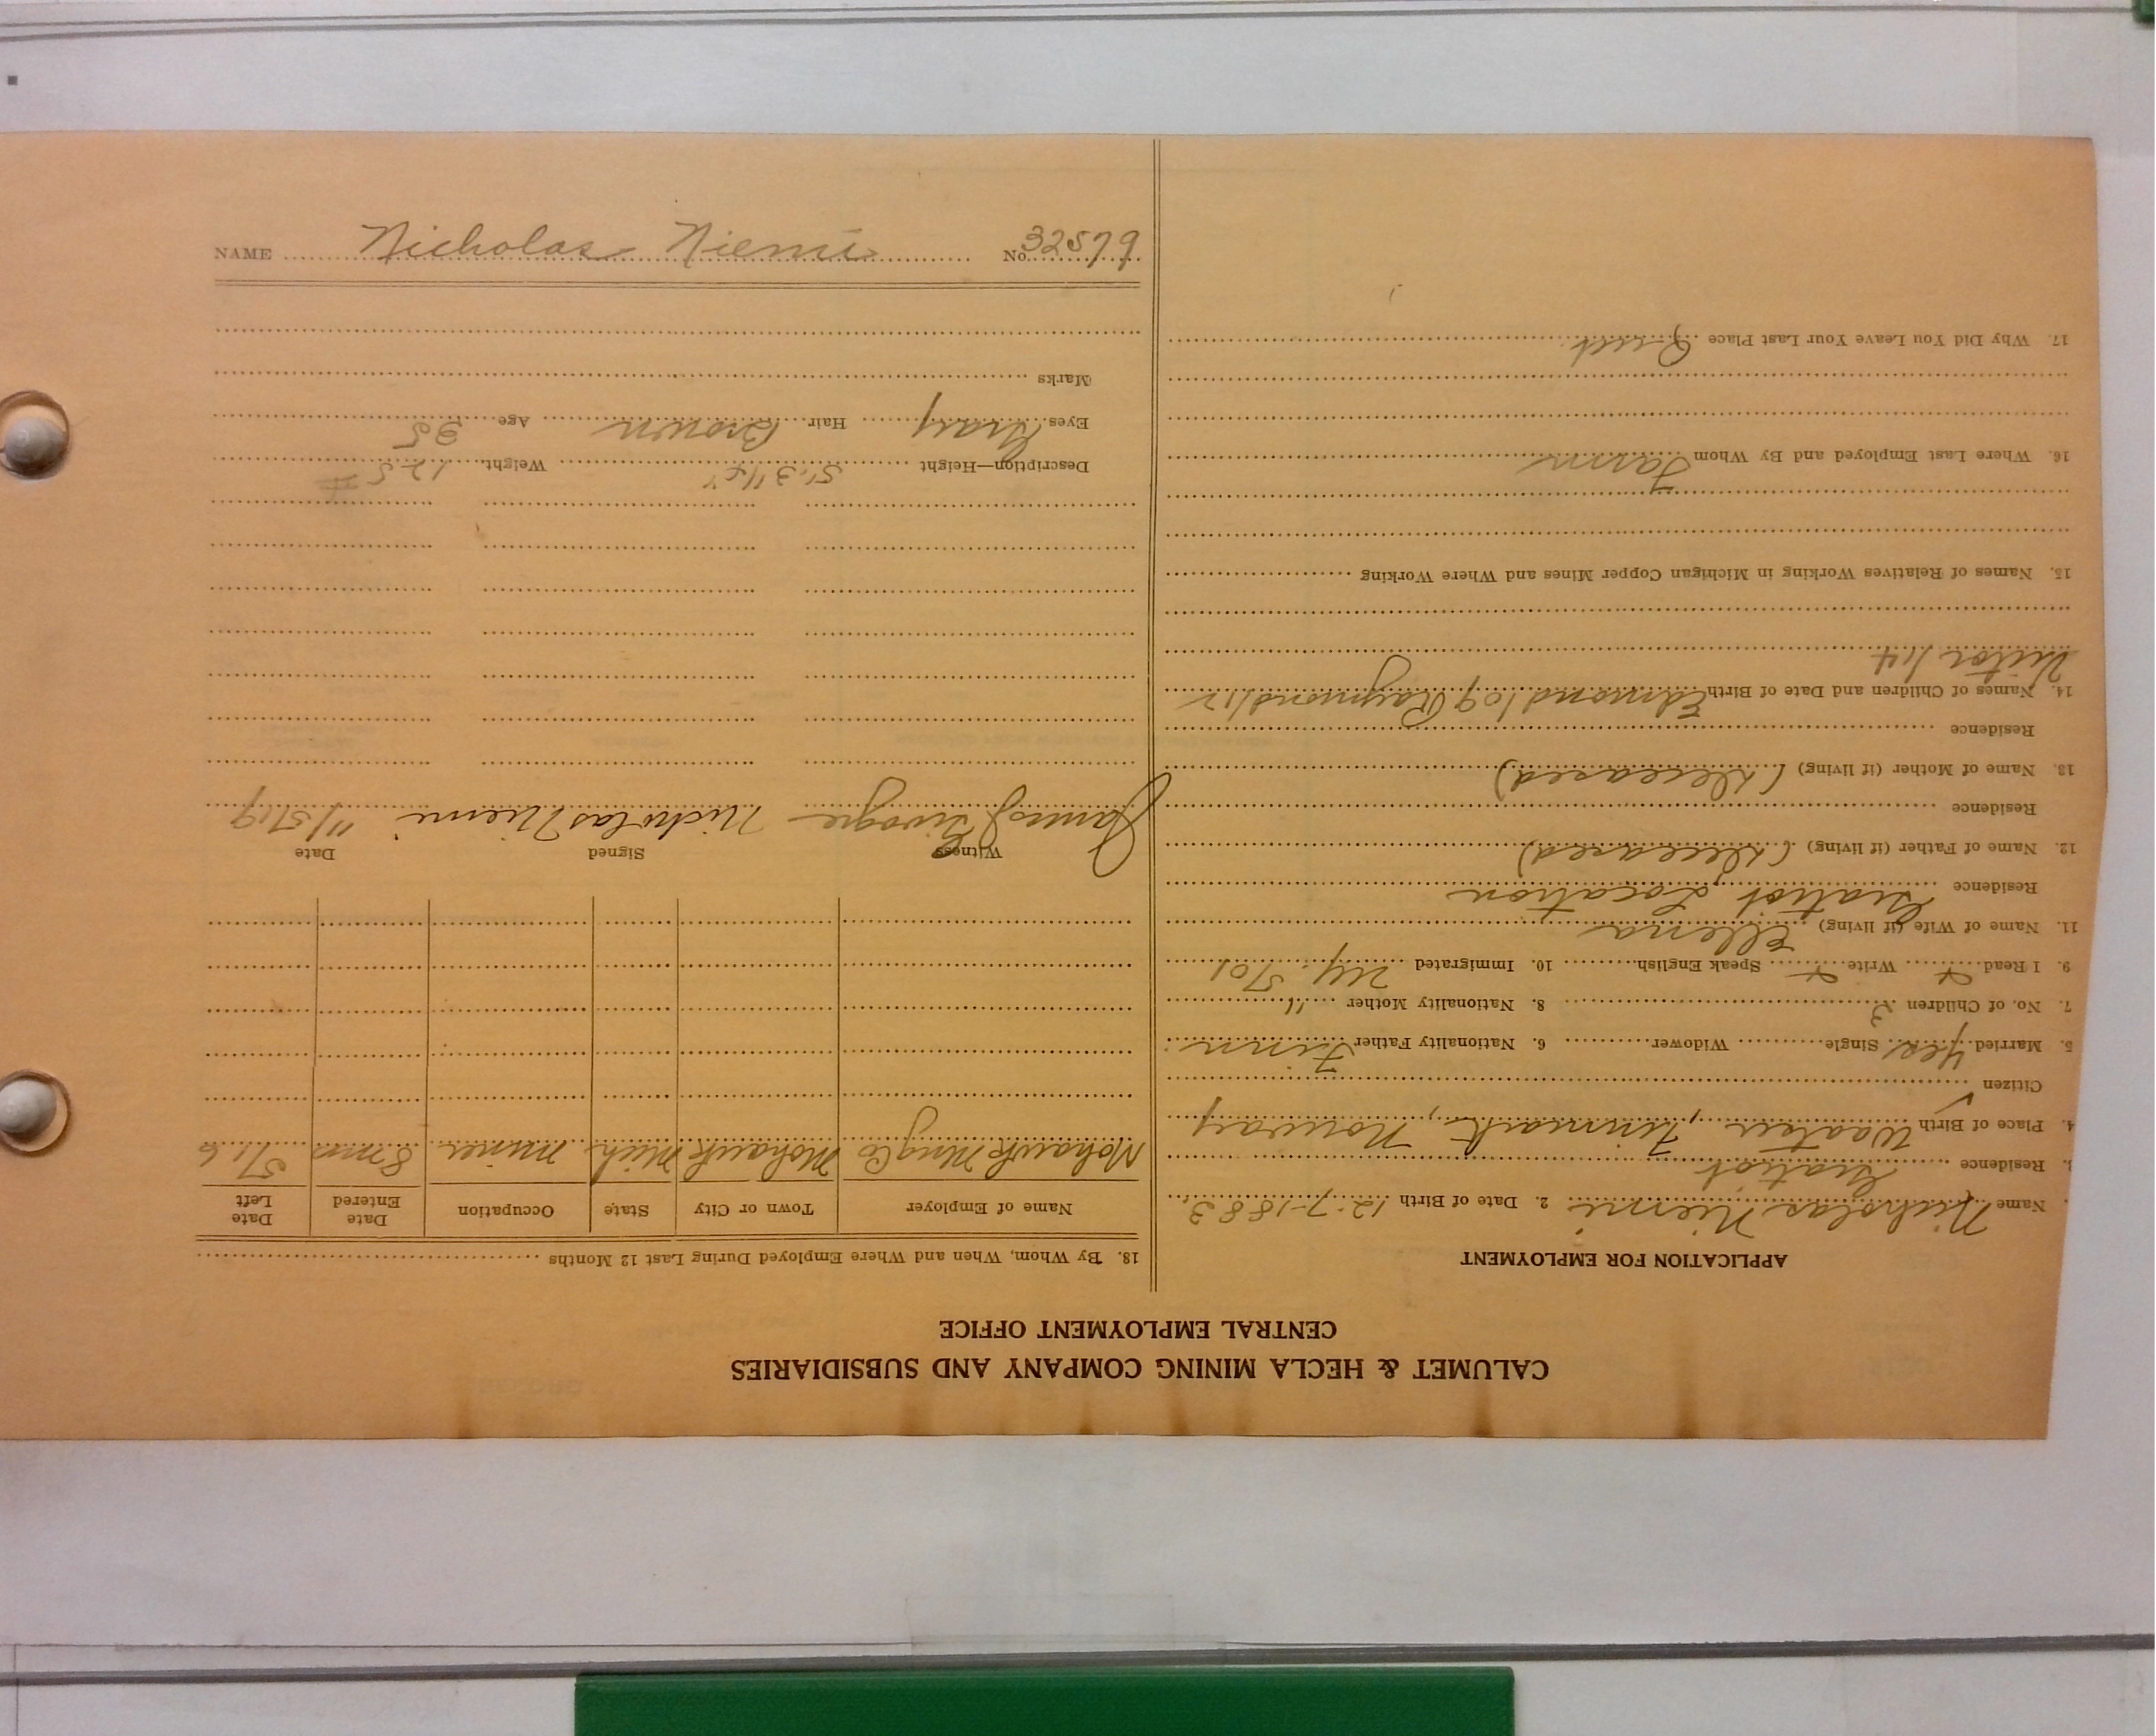 CALUMET & HECLA MINING COMPANY AND SUBSIDIARIES
CENTRAL EMPLOYMENT OFFICE
APPLICATION FOR EMPLOYMENT
Name Nicholas Niemi 2. Date of Birth 12-7-1883
3. Residence Gratiot
4. Place of Birth Finmark, Norway
Citizen
5. Married yes Single Widower 6. Nationality Father Finn
7. No. of Children 3 8. Nationality Mother "
9. I Read Write Speak English 10. Immigrated
11. Name of Wife (if living) Ellena
Residence Gratiot Location
12. Name of Father (if living) (Deceased)
Residence
13. Name of Mother (if living) (Deceased)
Residence
14. Names of Children and Date of Birth Edmond/09 Raymond/12
Victor/14
15. Names of Relatives Working in Michigan Copper Mines and Where Working
16. Where Last Employed and By Whom Farm
17. Why Did You Leave Your Last Place Quit
18. By Whom, When and Where Employed During Last 12 Months
Name of Employer Town or City State Occupation Date Entered Date Left
Mohawk Mng Co Mohawk Mich miner 8 mos 5/16
Witness Signed Date
James Nicholas Niemi 11/5/19
Description—Height 5'.3 1/4" Weight 125 #
Eyes Gray Hair Brown Age 35
Marks
NAME Nicholas Niemi No. 32579